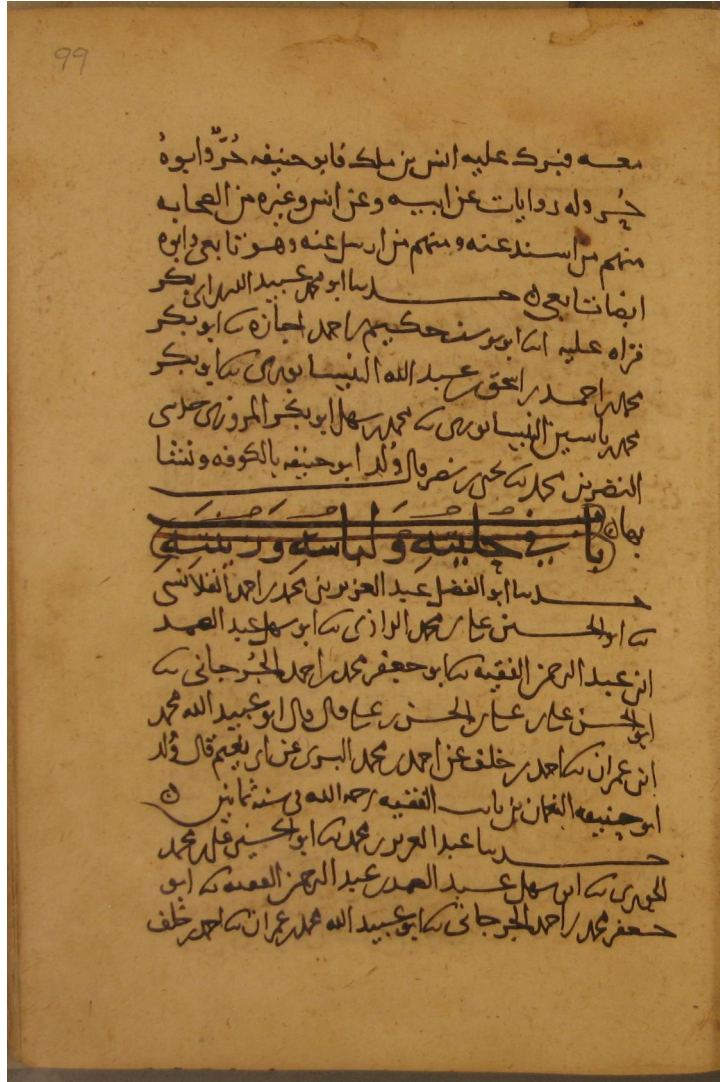 99
معه فبرك عليه انس بن ملك فابو حنيفه حُرّ وابوهُ
حُر وله روايات عن ابيه وعن انس وغيره من الصحابه
منهم من اسند عنه ومنهم من ارسل عنه وهو تابعى وابوه
ايضا تابعى حدثنا ابو محمد عبيد الله بن ابى بكر
قراه عليه ابو يوسف حكيم بن احمد اجازه ابو بكر
محمد بن احمد بن اسحق بن عبد الله النيسابورى ثنا ابو بكر
محمد بن ياسين النيسابورى ثنا محمد بن سهل ابو بكر المروزى حدثنى
النضر بن محمد ثنا يحيى بن نصر قال وُلد ابو حنيفه بالكوفه ونشا
بها
باب فى حليته ولباسه وزينته
حدثنا ابو الفضل عبد العزيز بن محمد بن احمد القلانسى
ثنا ابو الحسن على بن محمد الرازى ثنا ابو سهل عبد الصمد
ابن عبد الرحمن الفقيه ثنا ابو جعفر محمد بن احمد الجُرجانى ثنا
ابو الحسن على بن على بن الحسن بن على قال قال ابو عبيد الله محمد
ابن عمران ثنا احمد بن خلف عن احمد بن محمد عن ابى نعيم قال وُلد
ابو حنيفه النعمان بن ثابت الفقيه رحمه الله فى سنه ثمانين
حدثنا عبد العزيز بن محمد ثنا ابو الحسن على بن محمد
ثنا ابو سهل عبد الصمد بن عبد الرحمن الفقيه ثنا ابو
جعفر محمد بن احمد الجرجانى ثنا ابو عبيد الله محمد بن عمران ثنا احمد بن خلف